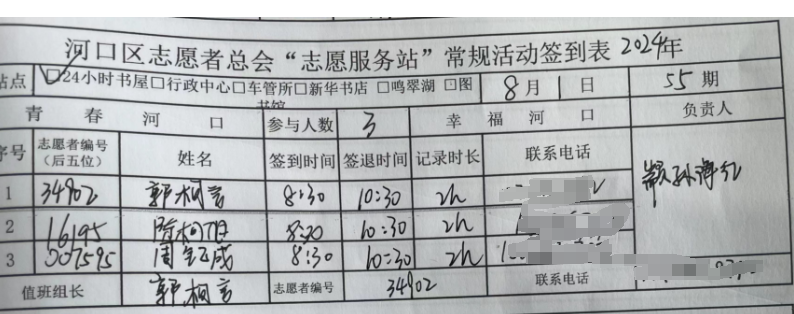 河口区志愿者总会“志愿服务站”常规活动签到表 2024年
站点 ☑24小时书屋□行政中心□车管所□新华书店 □鸣翠湖 □图书馆 8月1日 55期
青春河口 参与人数 3 幸福河口 负责人
序号 志愿者编号(后五位) 姓名 签到时间 签退时间 记录时长 联系电话
1 34902 郭桐言 8:30 10:30 2h
2 16195 陈柯 8:30 10:30 2h
3 007595 周 成 8:30 10:30 2h
值班组长 郭桐言 志愿者编号 34902 联系电话